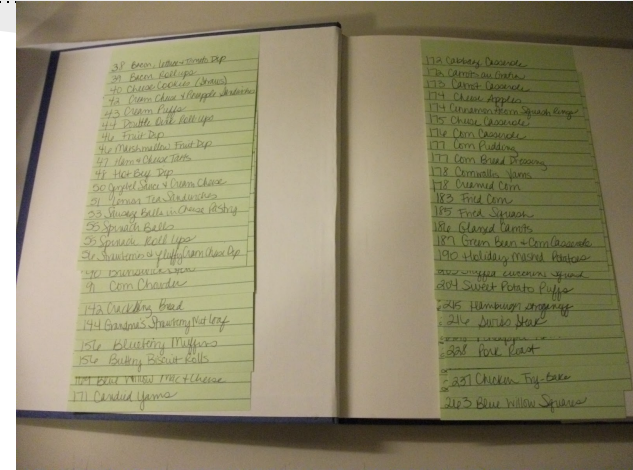 38 Bacon, Lettuce + Tomato Dip
39 Bacon Rollups
40 Cheese Cookies (Shaws)
42 Cream Cheese + Pineapple Sandwiches
43 Cream Puffs
44 Double Dill Roll Ups
46 Fruit Dip
46 Marshmallow Fruit Dip
47 Ham + Cheese Tarts
48 Hot Beef Dip
50 Jezebel Sauce + Cream Cheese
51 Lemon Tea Sandwiches
53 Sausage Balls in Cheese Pastry
55 Spinach Balls
55 Spinach Roll Ups
56 Strawberries + Fluffy Cream Cheese Dip
90 Brunswick
91 Corn Chowder
142 Crackling Bread
144 Grandma's Strawberry Nut Loaf
156 Blueberry Muffins
156 Buttery Biscuit Rolls
169 Blue Willow Mac + Cheese
171 Candied Yams
172 Cabbage Casserole
172 Carrots au Gratin
173 Carrot Casserole
174 Cheese Apples
174 Cinnamon Rings
175 Cheese Casserole
176 Corn Casserole
177 Corn Pudding
177 Corn Bread Dressing
178 Cornwallis Yams
178 Creamed Corn
183 Fried Corn
185 Fried Squash
186 Glazed Carrots
187 Green Bean + Corn Casserole
190 Holiday Mashed Potatoes
Stuffed Zucchini Squash
204 Sweet Potato Puffs
215 Hamburger
216 Swiss Steak
228 Pork Roast
237 Chicken Fry-Bake
263 Blue Willow Squares